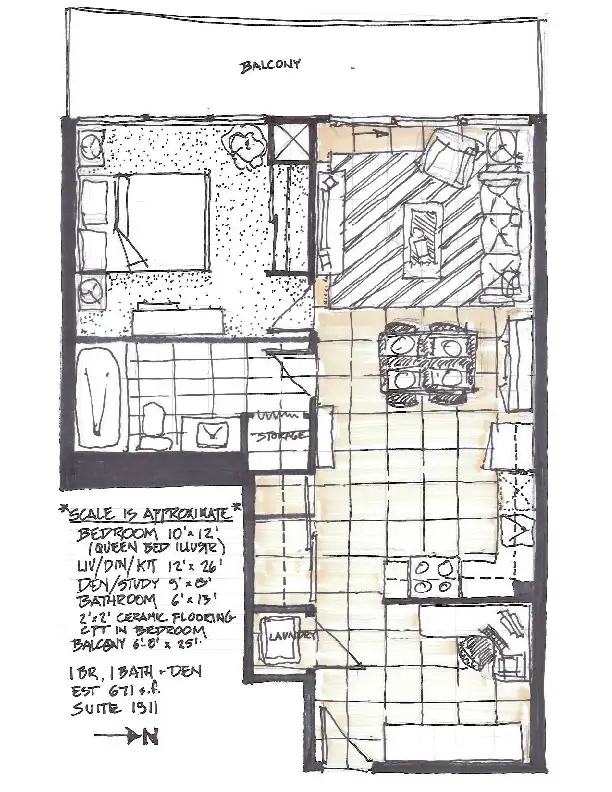 BALCONY
STORAGE
*SCALE IS APPROXIMATE*
BEDROOM 10'x12'
(QUEEN BED ILLUSTR)
LIV/DIN/KIT 12'x26'
DEN/STUDY 9'x8'
BATHROOM 6'x13'
2'x2' CERAMIC FLOORING
CPT IN BEDROOM
BALCONY 6'-8" x 25'
LAUNDRY
1 BR, 1 BATH + DEN
EST 671 s.f.
SUITE 1911
N